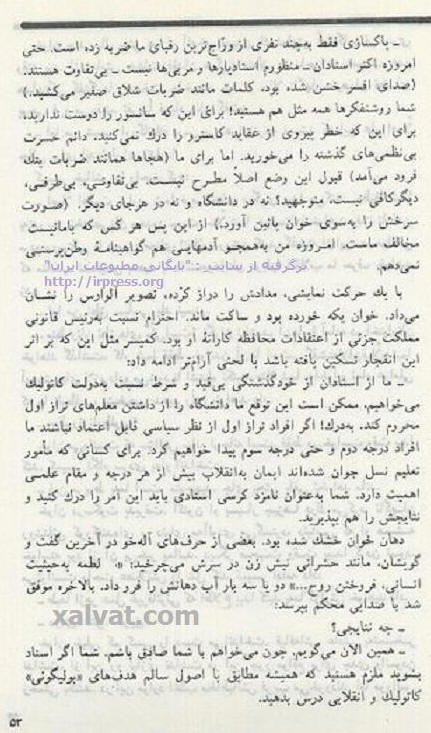 ـ پاکسازی فقط به‌چند نفری از ورّاج‌ترین رفبای ما ضربه زده است. حتی
امروزه اکثر استادان ـ منظورم استادیارها و مربی‌ها نیست ـ بی‌تفاوت هستند.
(صدای افسر خشن شده بود. کلمات مانند ضربات شلاق صفیر می‌کشید.)
شما روشنفکرها همه مثل هم هستید! برای این که سانسور را دوست ندارید،
برای این که خطر پیروی از عقاید کاسترو را درك نمی‌کنید. دائم حسرت
بی‌نظمی‌های گذشته را می‌خورید. اما برای ما (هجاها همانند ضربات پتك
فرود می‌آمد) قبول این وضع اصلاً مطرح نیست. بی‌تفاوتی، بی‌طرفی،
دیگرکافی نیست، متوجهید؟ نه در دانشگاه و نه در هرجای دیگر. (صورت
سرخش را به‌سوی خوان پائین آورد.) از این پس هر کس که بامانیست
مخالف ماست. امروزه من به‌همچو آدمهایی هم گواهینامهٔ وطن‌پرستی
نمی‌دهم.
برگرفته از سایت : "بایگانی مطبوعات ایران"
http://irpress.org
با یك حرکت نمایشی، مدادش را دراز کرده، تصویر آلوارس را نشان
می‌داد. خوان یکه خورده بود و ساکت ماند. احترام نسبت به‌رئیس قانونی
مملکت جزئی از اعتقادات محافظه کارانهٔ او بود. کمیسر مثل این که بر اثر
این انفجار تسکین یافته باشد با لحنی آرام‌تر ادامه داد:
ـ ما از استادان از خودگذشتگی بی‌قید و شرط نسبت به‌دولت کاتولیك
می‌خواهیم. ممکن است این توقع ما دانشگاه را از داشتن معلم‌های تراز اول
محروم کند. به‌درك! اگر افراد تراز اول از نظر سیاسی قابل اعتماد نباشند ما
افراد درجه دوم و حتی درجه سوم پیدا خواهیم کرد. برای کسانی که مأمور
تعلیم نسل جوان شده‌اند ایمان به‌انقلاب بیش از هر درجه و مقام علمی
اهمیت دارد. شما به‌عنوان نامزد کرسی استادی باید این امر را درك کنید و
نتایجش را هم بپذیرید.
دهان خوان خشك شده بود. بعضی از حرف‌های آله‌خو در آخرین گفت و
گویشان، مانند حشراتی نیش زن در سرش می‌چرخید: «، لطمه به‌حیثیت
انسانی، فروختن روح...» دو یا سه بار آب دهانش را فرو داد. بالاخره موفق
شد با صدایی محکم بپرسد:
xalvat.com
ـ چه نتایجی؟
ـ همین الان می‌گویم. چون می‌خواهم با شما صادق باشم. شما اگر استاد
بشوید ملزم هستید که همیشه مطابق با اصول سالم هدف‌های «یولیگوتی»
کاتولیك و انقلابی درس بدهید.
۵۳